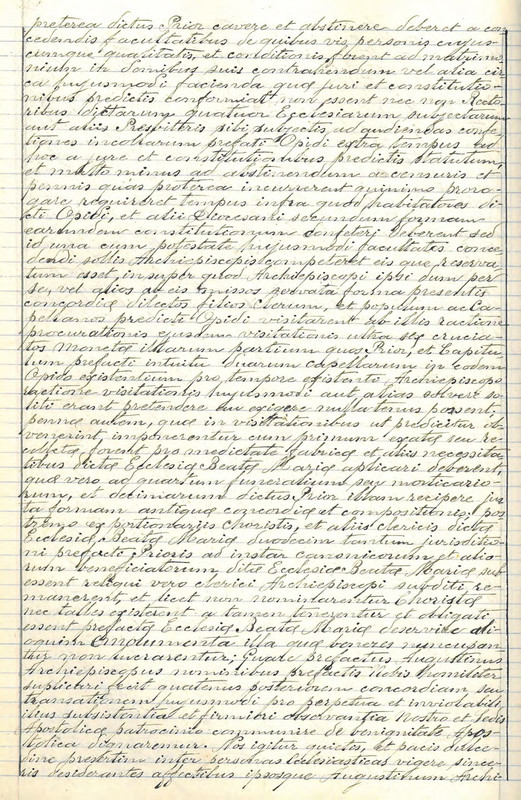 preterea dictus Prior cavere et abstinere deberet a con
cedendis facultatibus de quibus vis personis cujus
cumque qualitatis, et conditionis forent ad matrimo
nium in domibus suis contrahendum vel alia cir
ca hujusmodi facienda quæ juri et constitutio
nibus predictis conformia non essent nec non Recto
ribus dictarum quatuor Ecclesiarum subjectarum
aut aliis Presbiteris sibi subjectis ad audiendas confe
tiones incolarum prefati Opidi extra tempus ad
hoc a jure et constitutionibus predictis statutum,
et multo minus ad abstinendum a censuris et
pennis quas proterea incurrerent quinimo proro
gare requireret tempus infra quod habitatores di
cti Opidi, et alii Diocesani secundum formam
earumdem constitutionum confiteri deberent sed
id una cum potestate hujusmodi facultates conce
dendi sollis Archiepiscopis competeret eis que reserva
tum esset, in super quod Archiepiscopi ipsi dum per
se, vel alios ab eis missos servata forma presentis
concordiæ dilectos filios Clerum, et populum ac Ca
pellanos predicti Opidi visitarent sub illis ractione
procurationis ejusdem visitationis ultra sex crucia
tos Monetæ illarum partium quos Prior, et Capitu
lum prefacti intuitu duarum capellarum in eodem
Opido existentium pro tempore existenti Archiepiscopo
ractione visitationis hujusmodi aut alias solvere so
liti erant pretendere seu exigere nullatenus possent;
pennæ autem, quæ in visitationibus ut predicitur ob
venirint, imponerentur cum primum exactæ seu re
collectæ, forent pro medietate fabricæ et aliis necessita
tibus dictæ Ecclesiæ Beatæ Mariæ aplicari deberent,
quæ vero ad quartum funeralium seu mortuario
rum, et decimarum dictus Prior illam recipere jux
ta formam antiquæ concordiæ et compositionis; pos
tremo ex portionariis Choristis, et aliis clericis dictæ
Ecclesiæ Beatæ Mariæ duodecim tantum jurisdictio
ni prefacti Prioris ad instar canonicorum et alio
rum beneficiatorum dictæ Ecclesiæ Beatæ Mariæ sub
essent reliqui vero clerici Archiepiscopi subditi re
manerent, et licet non nominarentur Choristæ
nec tales existerent a tamen tenerentur et obligati
essent prefactæ Ecclesiæ Beatæ Mariæ deservire ali
oquim emolumenta illa quæ benezes nuncupan
tur non lucrarentur; Quare prefactus Augustinus
Archiepiscopus nominibus prefactis Nobis humiliter
suplicari fecit quatenus posteriorem concordiam seu
transationem hujusmodi pro perpetua et inviolabili
illius subsistentia et firmiori observantia Nostro et Sedis
Apostolicæ patrocinio communire de benignitate Apos
tolica dignaremur. Nos igitur quietis, et pacis dulce
dine prestrtim inter personas Ecclesiasticas vigere since
ris desiderantes affectibus ipsosque Augustinum Archi